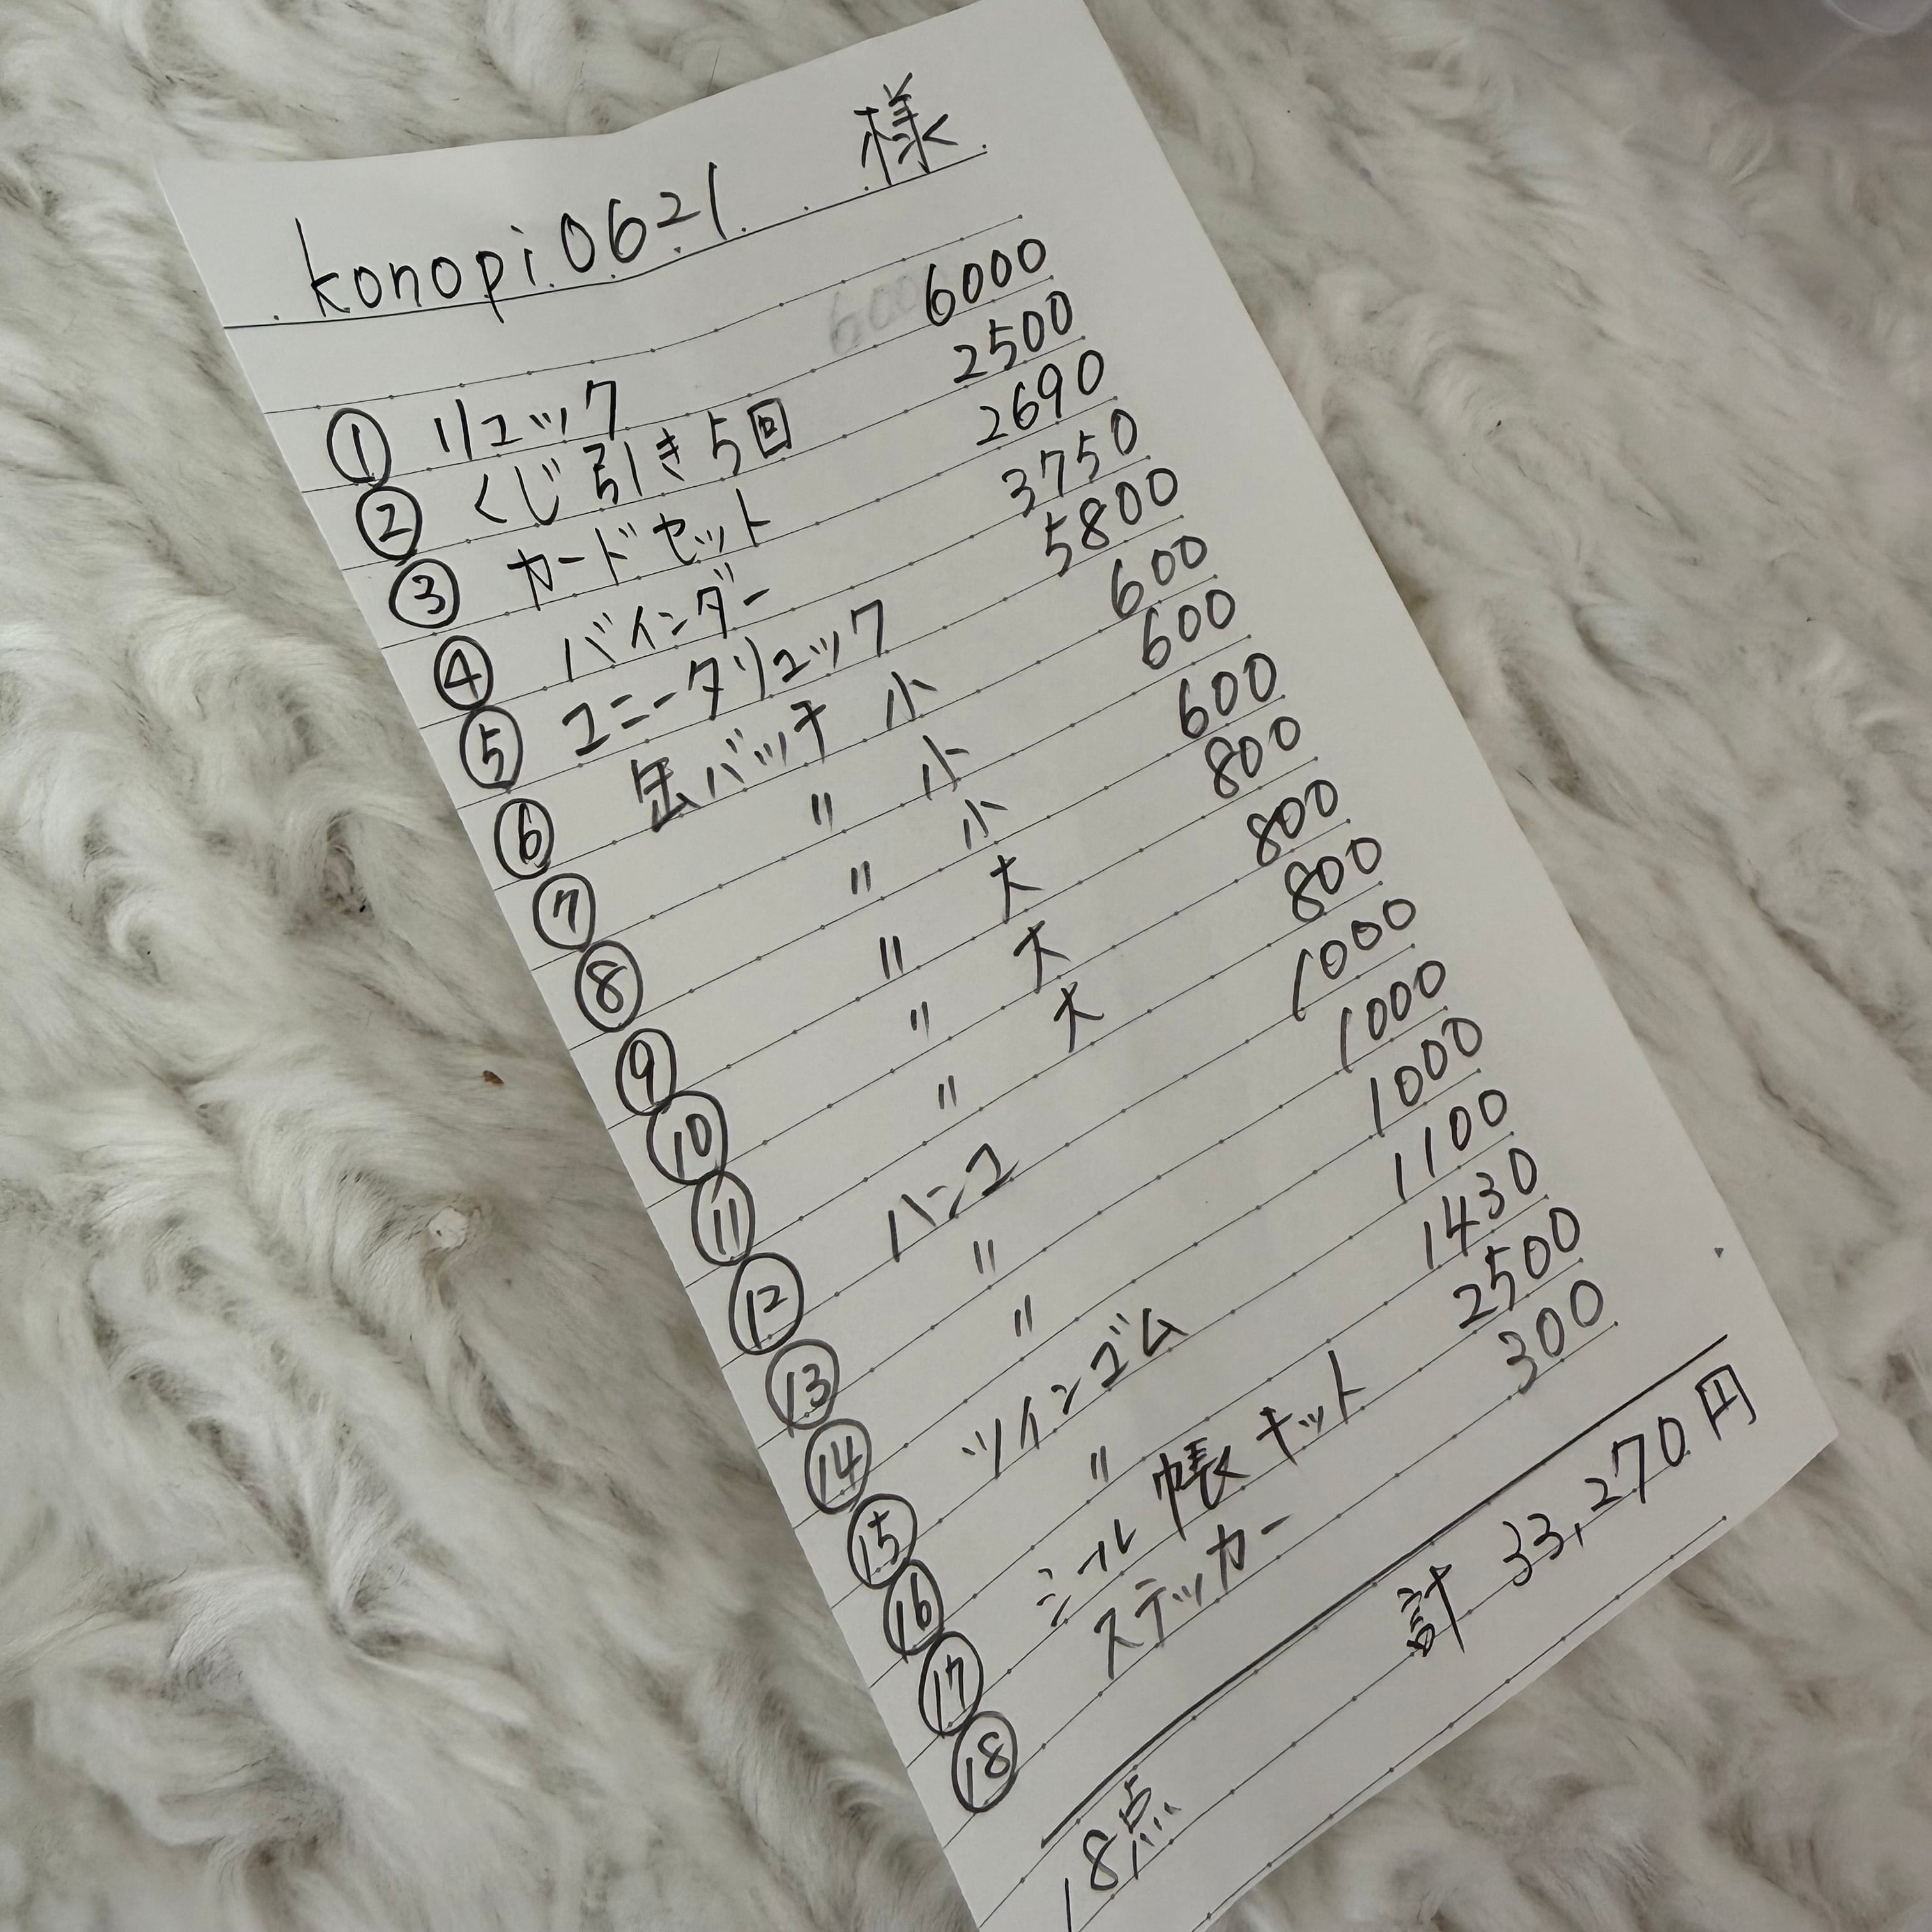 konopi0621 様
① リュック 6000
② くじ引き5回 2500
③ カードセット 2690
④ バインダー 3750
⑤ ユニータリュック 5800
⑥ 缶バッチ 小 600
⑦ 〃 小 600
⑧ 〃 小 600
⑨ 〃 大 800
⑩ 〃 大 800
⑪ 〃 大 800
⑫ ハンコ 1000
⑬ 〃 1000
⑭ 〃 1000
⑮ ツインゴム 1100
⑯ 〃 1430
⑰ シール帳キット 2500
⑱ ステッカー 300
計 33,270円
18点